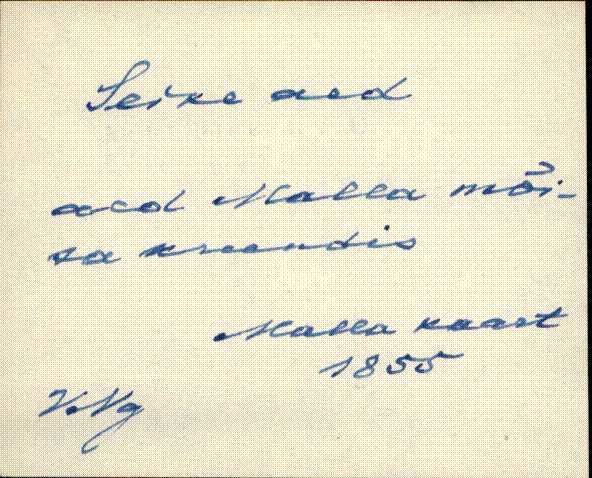 Seire aed
aed Malla mõi-
sa kreendis
Malla kaart
1855
V.Ng